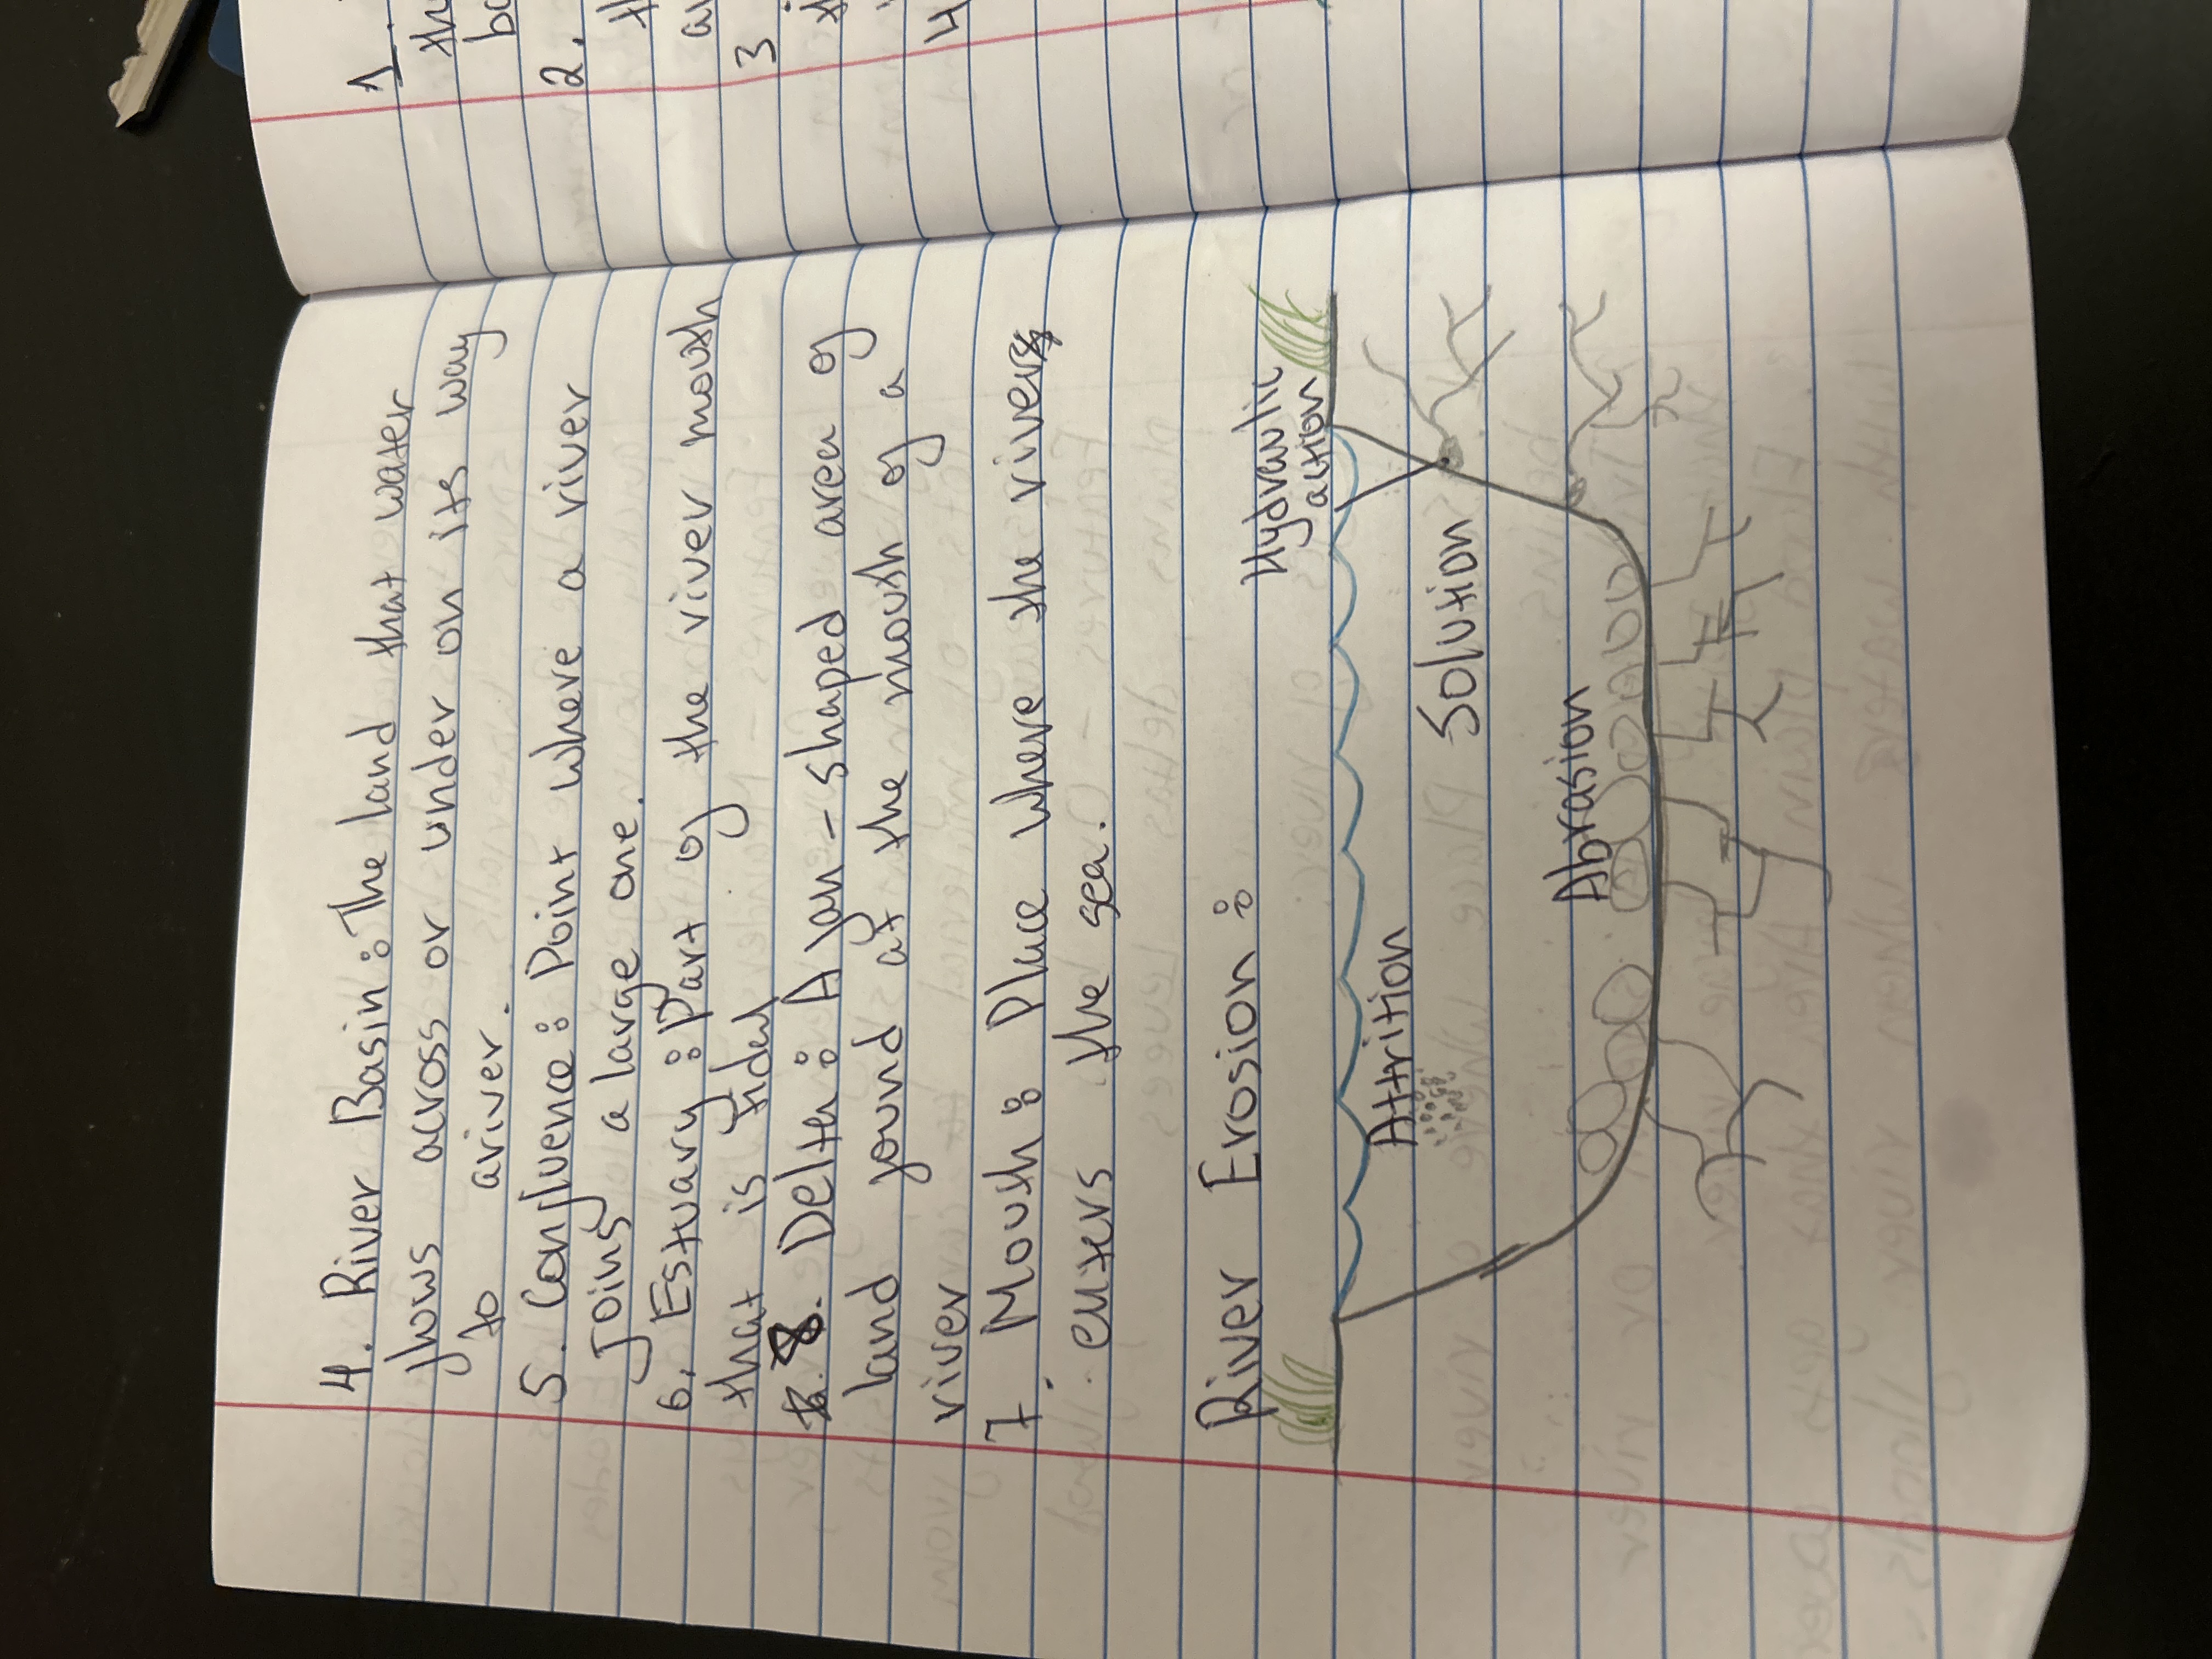 4. River Basin: The land that water
flows across or under on its way
to ariver.
5. Confluence: Point where a river
Joins a large one.
6. Estuary: Part of the river mouth
that is tidel
8. Delta: A fan-shaped area of
land found at the mouth of a
river
7. Mouth: Place where the river
enters the sea.
River Erosion:
Hydraulic
action
Attrition
Solution
Abrasion
1.
2.
3
4